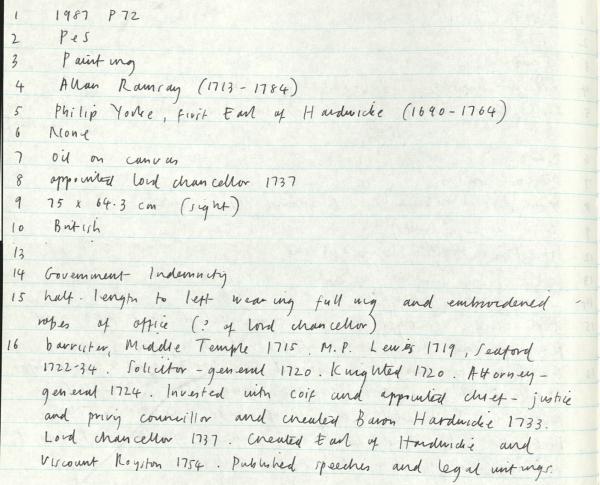 1 1987 P72
2 PeS
3 Painting
4 Allan Ramsay (1713-1784)
5 Philip Yorke, first Earl of Hardwicke (1690-1764)
6 None
7 oil on canvas
8 appointed lord chancellor 1737
9 75 x 64.3 cm (sight)
10 British
13
14 Government Indemnity
15 half-length to left wearing full wig and embroidered
robes of office (? of lord chancellor)
16 barrister, Middle Temple 1715, M.P. Lewes 1719, Seaford
1722-34. Solicitor-general 1720. Knighted 1720. Attorney-
general 1724. Invested with coif and appointed chief-justice
and privy councillor and created Baron Hardwicke 1733.
Lord chancellor 1737. Created Earl of Hardwicke and
Viscount Royston 1754. Published speeches and legal writings.